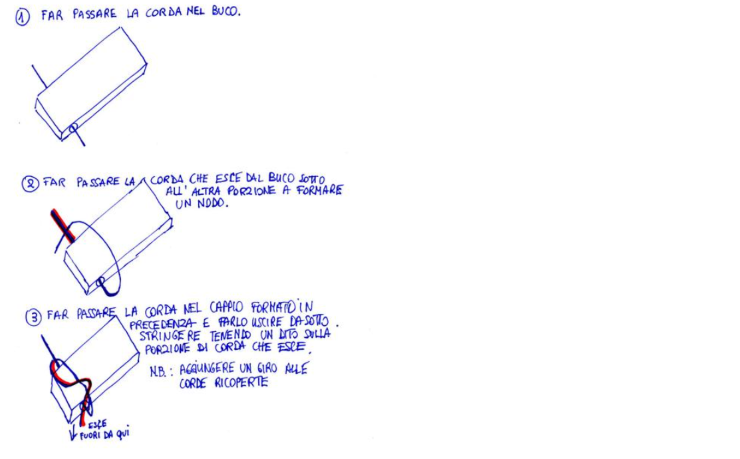 ① FAR PASSARE LA CORDA NEL BUCO.
② FAR PASSARE LA CORDA CHE ESCE DAL BUCO SOTTO
ALL'ALTRA PORZIONE A FORMARE
UN NODO.
③ FAR PASSARE LA CORDA NEL CAPPIO FORMATO IN
PRECEDENZA E FARLO USCIRE DA SOTTO.
STRINGERE TENENDO UN DITO SULLA
PORZIONE DI CORDA CHE ESCE.
N.B.: AGGIUNGERE UN GIRO ALLE
CORDE RICOPERTE
ESCE
FUORI DA QUI